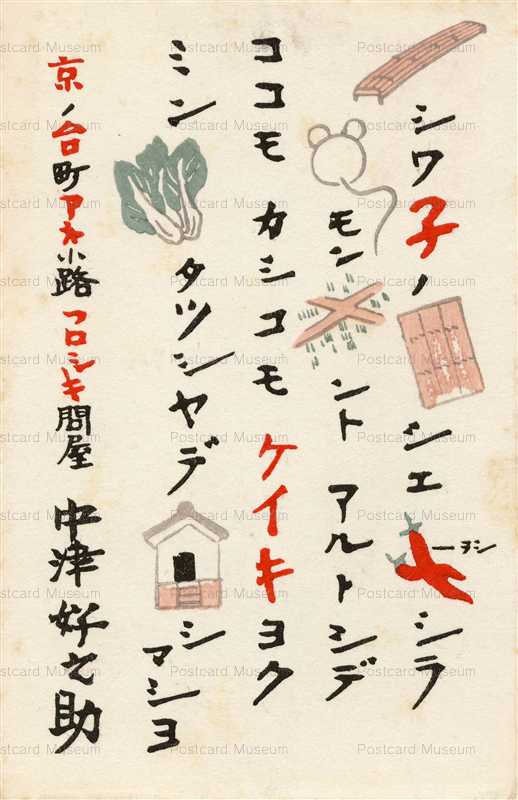 シワ子ノ シエ ーヲシ シラ
モン ント アルトンデ
ココモ カシコモ ケイキヨク
ミン タツシヤデ シマシヨ
京ノ台町アネ小路フロシキ問屋 中津好之助
Postcard Museum